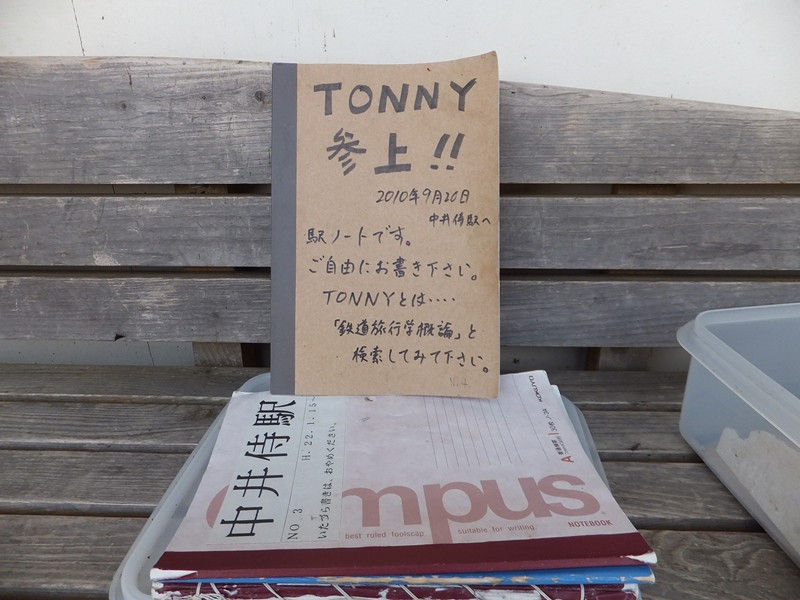 TONNY
参上!!
2010年9月20日
中井侍駅へ
駅ノートです。
ご自由にお書き下さい。
TONNYとは‥‥
「鉄道旅行学概論」と
検索してみて下さい。
中井侍駅
H.22.1.15~
NO 3
いたづら書きは、おやめください。
KOKUYO
mpus
best ruled foolscap
suitable for writing.
NOTEBOOK